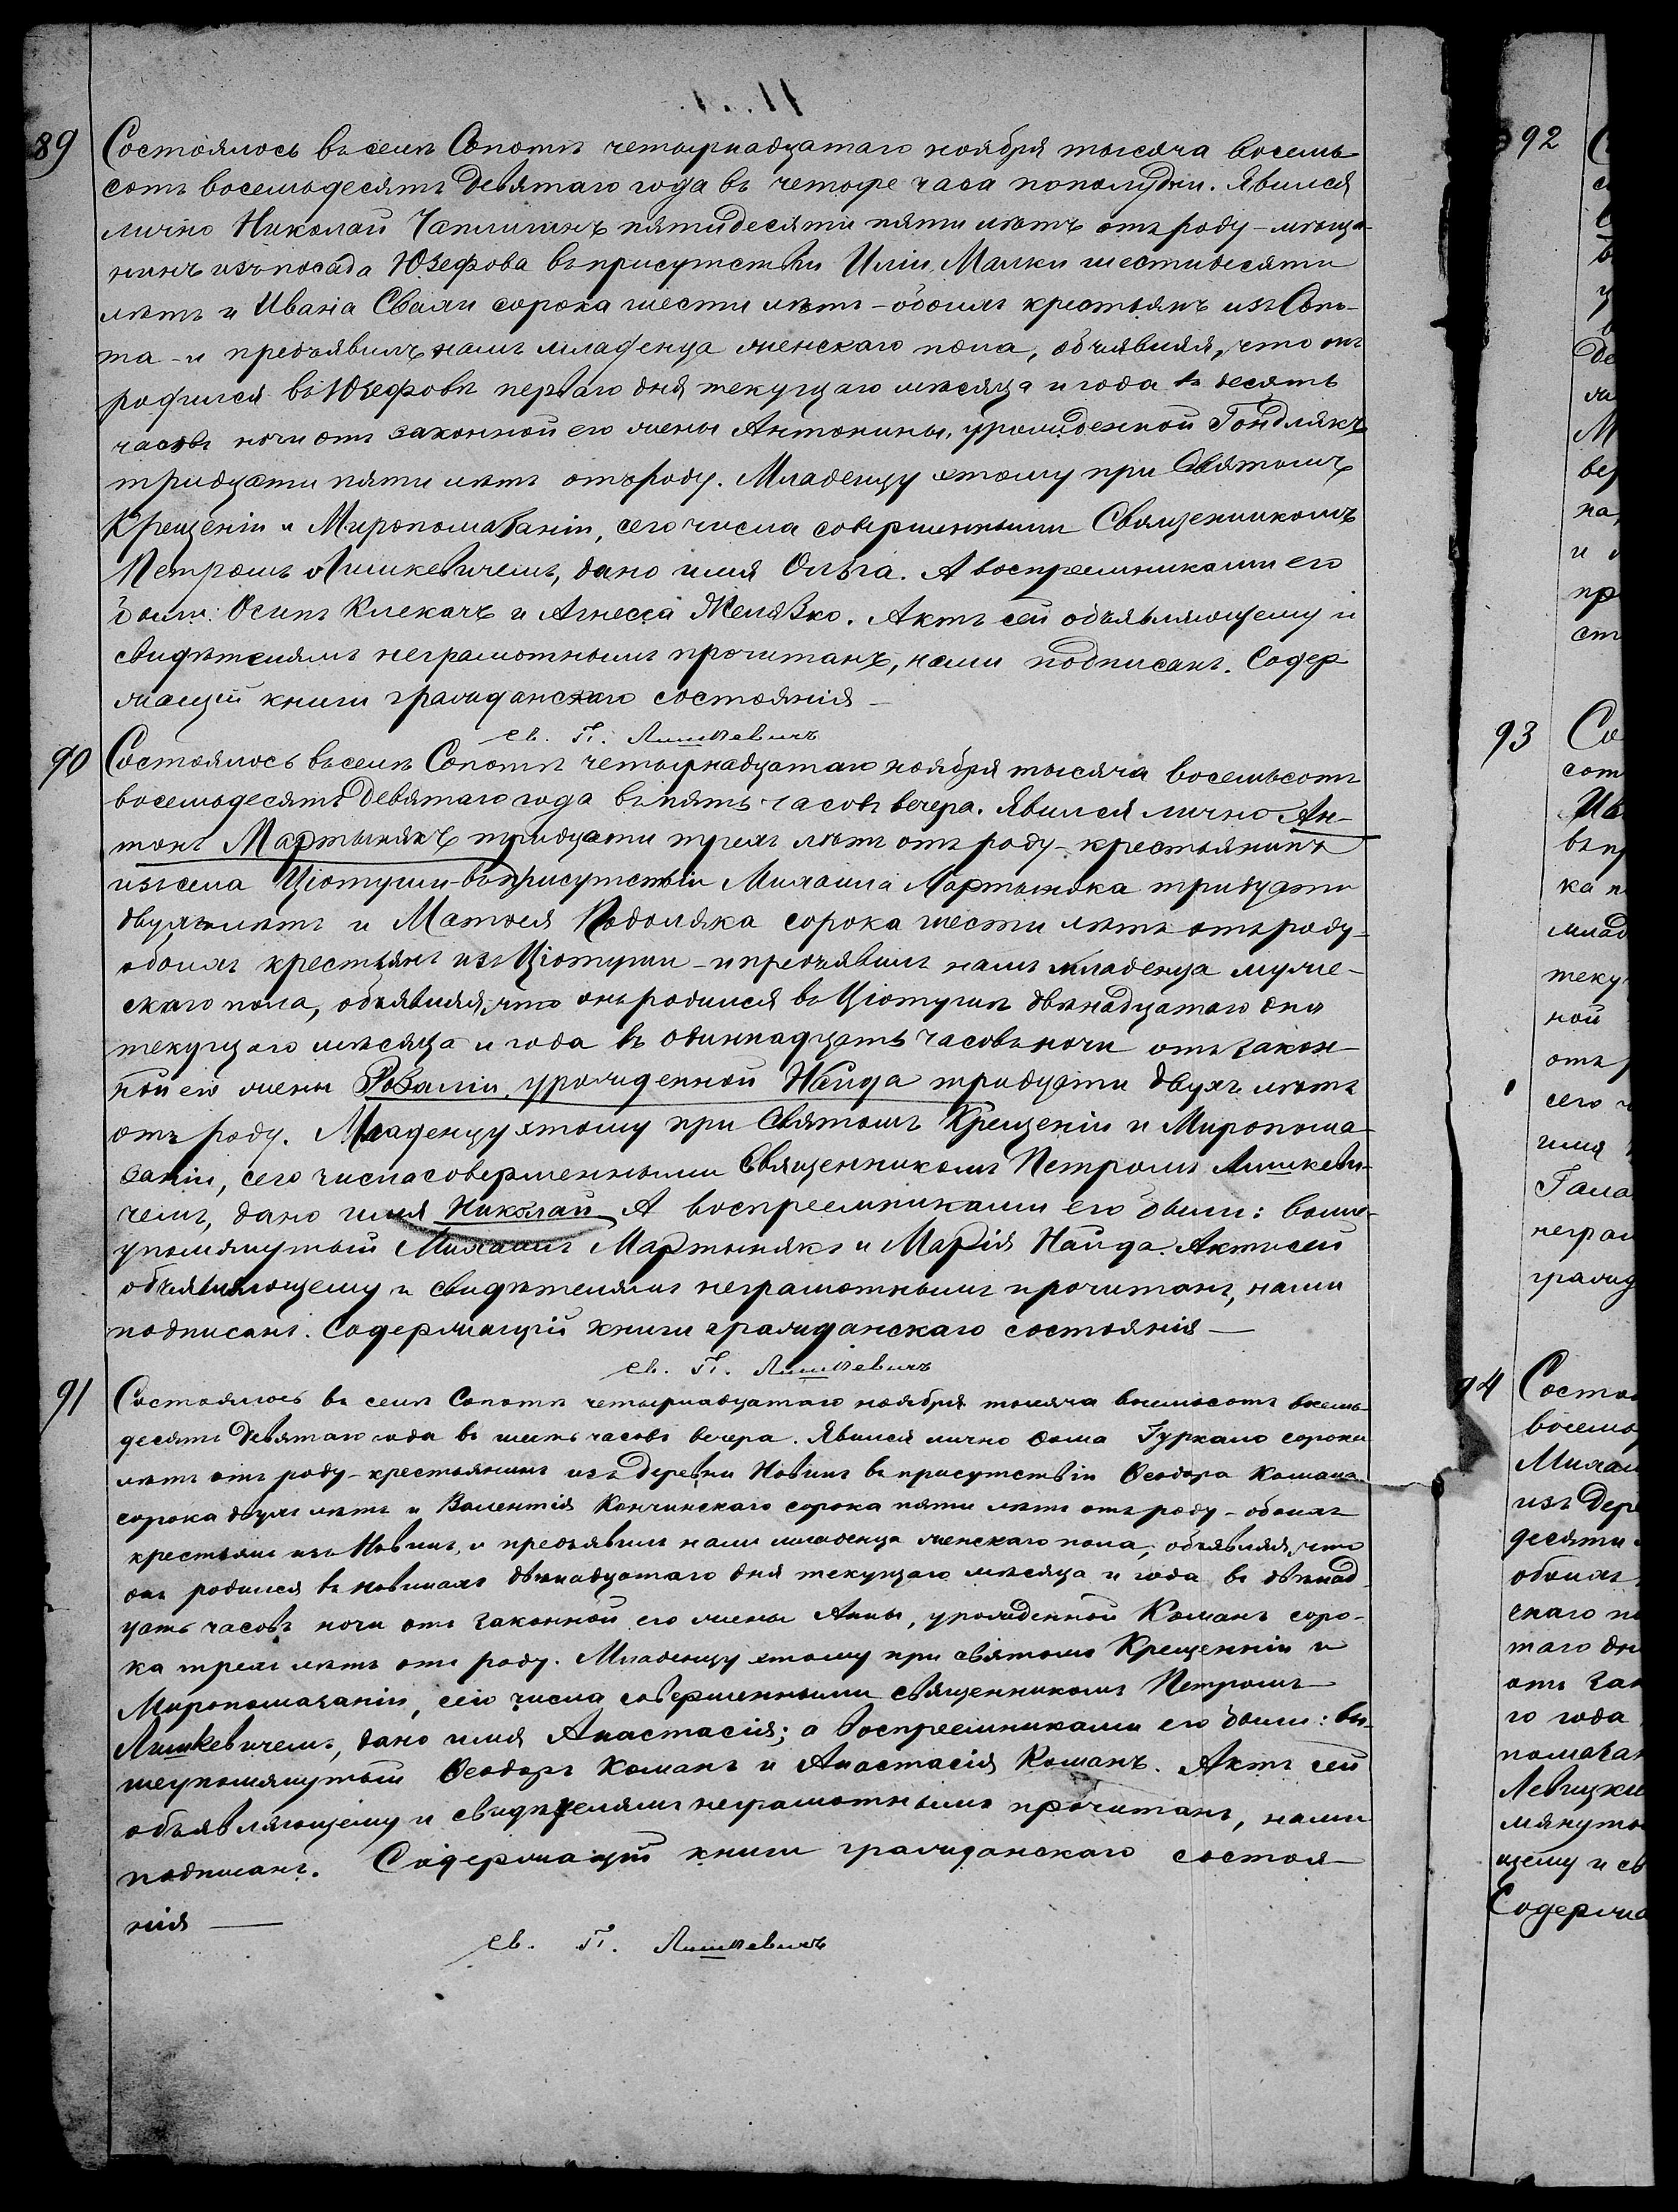 89
Состоялось въ селѣ Сопотѣ четырнадцатаго ноября тысяча восемь-
сотъ восемьдесятъ девятаго года въ четыре часа пополудни. Явился
лично Николай Чаплигинъ пятидесяти пяти лѣтъ отъ роду - мѣща-
нинъ изъ посада Юзефова въ присутствіи Иліи Малки шестидесяти
лѣтъ и Ивана Свали сорока шести лѣтъ - обоихъ крестьянъ изъ Сопо-
та - и предъявилъ намъ младенца женскаго пола, объявляя, что онъ
родился въ Юзефовѣ перваго дня текущаго мѣсяца и года въ десять
часовъ ночи отъ законной его жены Антонины, урожденной Гондлякъ
тридцати пяти лѣтъ отъ роду. Младенцу этому при Святомъ
Крещеніи и Миропомазаніи, сего числа совершенными Священникомъ
Петромъ Лишкевичемъ, дано имя Ольга. А воспреемниками его
были: Осипъ Клекачъ и Агнесса Желязко. Актъ сей объявляющему и
свидѣтелямъ неграмотнымъ прочитанъ, нами подписанъ. Содер
жащій книги гражданскаго состоянія —
Св. П. Лишкевичъ
90
Состоялось въ селѣ Сопотѣ четырнадцатаго ноября тысяча восемьсотъ
восемьдесятъ девятаго года въ пять часовъ вечера. Явился лично Ан-
тонъ Мартынякъ тридцати трехъ лѣтъ отъ роду - крестьянинъ
изъ села Ціотуши - въ присутствіи Михаила Мартыняка тридцати
двухъ лѣтъ и Матвея Подоляка сорока шести лѣтъ отъ роду -
обоихъ крестьянъ изъ Ціотуши - и предъявилъ намъ младенца муже-
скаго пола, объявляя, что онъ родился въ Ціотушѣ двѣнадцатаго дня
текущаго мѣсяца и года въ одиннадцать часовъ ночи отъ закон-
ной его жены Розаліи, урожденной Найда тридцати двухъ лѣтъ
отъ роду. Младенцу этому при Святомъ Крещеніи и Миропома-
заніи, сего числа совершенными Священникомъ Петромъ Лишкеви-
чемъ, дано имя Николай. А воспреемниками его были: выше-
упомянутый Михаилъ Мартынякъ и Марія Найда. Актъ сей
объявляющему и свидѣтелямъ неграмотнымъ прочитанъ, нами
подписанъ. Содержащій книги гражданскаго состоянія —
Св. П. Лишкевичъ
91
Состоялось въ селѣ Сопотѣ четырнадцатаго ноября тысяча восемьсотъ восемь-
десятъ девятаго года въ шесть часовъ вечера. Явился лично Ѳома Гуркало сорока
лѣтъ отъ роду - крестьянинъ изъ деревни Новинъ въ присутствіи Ѳеодора Комана
сорока двухъ лѣтъ и Валентія Кончинскаго сорока пяти лѣтъ отъ роду - обоихъ
крестьянъ изъ Новинъ, и предъявилъ намъ младенца женскаго пола, объявляя, что
онъ родился въ Новинахъ двѣнадцатаго дня текущаго мѣсяца и года въ двѣнад-
цать часовъ ночи отъ законной его жены Анны, урожденной Команъ соро-
ка трехъ лѣтъ отъ роду. Младенцу этому при святомъ Крещенніи и
Миропомазаніи, сего числа совершенными священникомъ Петромъ
Лишкевичемъ, дано имя Анастасія; а воспреемниками его были: вы-
шеупомянутый Ѳеодоръ Команъ и Анастасія Команъ. Актъ сей
объявляющему и свидѣтелямъ неграмотнымъ прочитанъ, нами
подписанъ. Содержащій книги гражданскаго состоя-
нія —
Св. П. Лишкевичъ
92
93
94
Состоя
восемьд
Михаи
изъ дере
десяти
обоихъ
скаго по
таго дн
отъ зак
го года
помазан
Левицки
мянуты
щему и св
Содержа